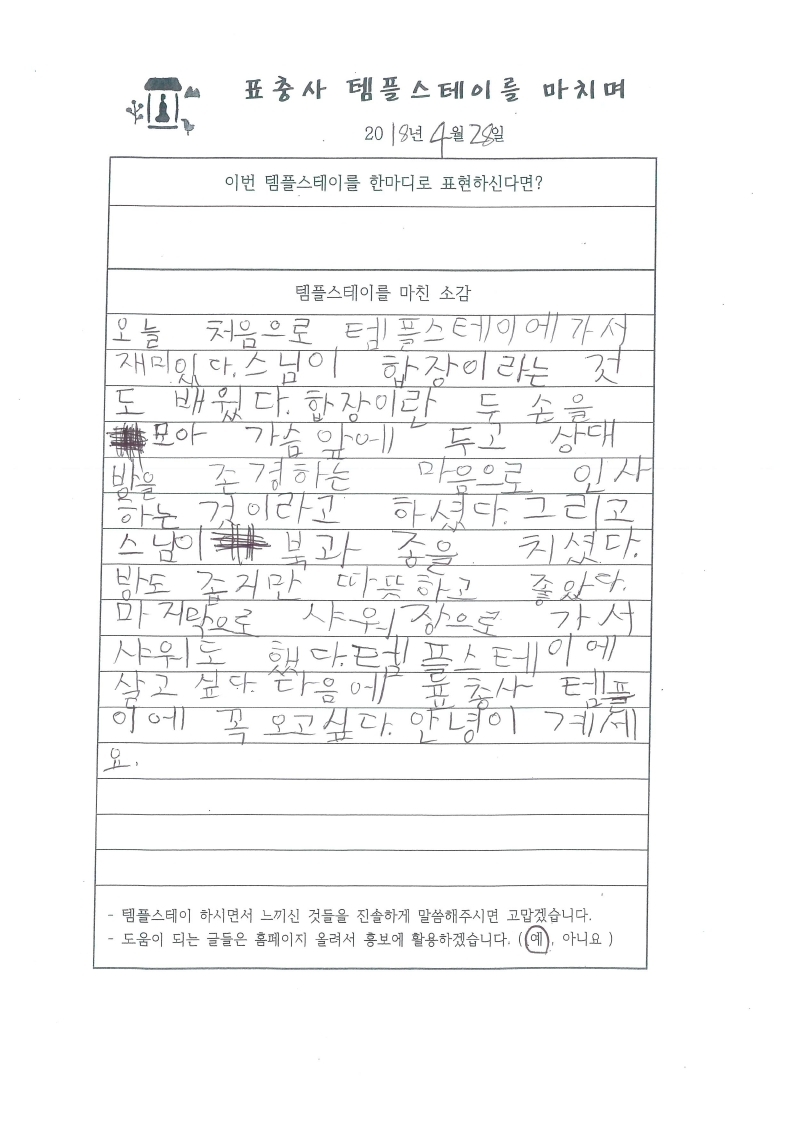 표충사 템플스테이를 마치며
2018년 4월 28일
이번 템플스테이를 한마디로 표현하신다면?
템플스테이를 마친 소감
오늘 처음으로 텀플스테이에가서
재미있다.스님이 합장이라는 것
도 배웠다.합장이란 두 손을
모아 가슴앞에 두고 상대
방을 존경하는 마음으로 인사
하는 것이라고 하셨다.그리고
스님이 북과 종을 치셨다.
방도 좁지만 따뜻하고 좋았다.
마지막으로 샤워장으로 가서
샤워도 했다.텀플스테이에
살고 싶다. 다음에 표충사 템플
이에 꼭 오고싶다.안녕이 계세
요.
- 템플스테이 하시면서 느끼신 것들을 진솔하게 말씀해주시면 고맙겠습니다.
- 도움이 되는 글들은 홈페이지 올려서 홍보에 활용하겠습니다. ( 예 , 아니요 )